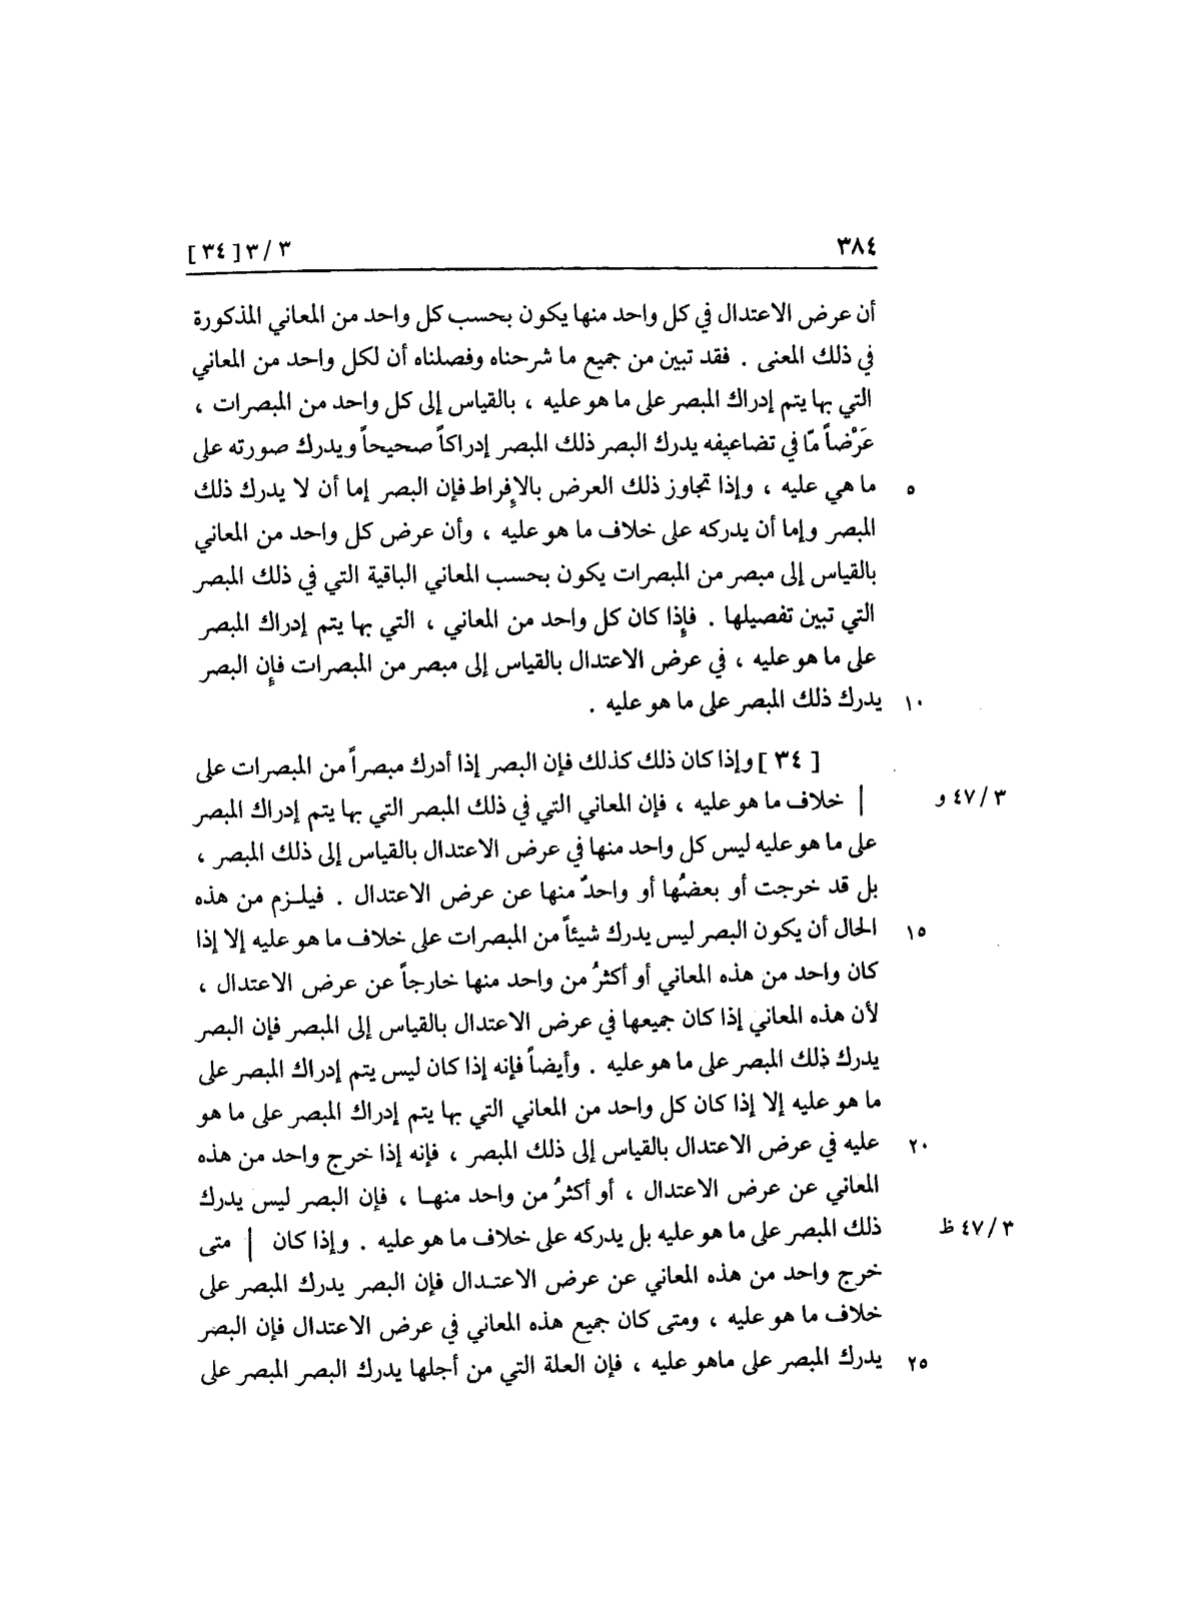 ٣٨٤
٣/٣ [٣٤]
أن عرض الاعتدال في كل واحد منها يكون بحسب كل واحد من المعاني المذكورة
في ذلك المعنى . فقد تبين من جميع ما شرحناه وفصلناه أن لكل واحد من المعاني
التي بها يتم إدراك المبصر على ما هو عليه ، بالقياس إلى كل واحد من المبصرات ،
عَرْضاً مّا في تضاعيفه يدرك البصر ذلك المبصر إدراكاً صحيحاً ويدرك صورته على
٥ ما هي عليه ، وإذا تجاوز ذلك العرض بالإفراط فإن البصر إما أن لا يدرك ذلك
المبصر وإما أن يدركه على خلاف ما هو عليه ، وأن عرض كل واحد من المعاني
بالقياس إلى مبصر من المبصرات يكون بحسب المعاني الباقية التي في ذلك المبصر
التي تبين تفصيلها . فإذا كان كل واحد من المعاني ، التي بها يتم إدراك المبصر
على ما هو عليه ، في عرض الاعتدال بالقياس إلى مبصر من المبصرات فإن البصر
١٠ يدرك ذلك المبصر على ما هو عليه .
[ ٣٤ ] وإذا كان ذلك كذلك فإن البصر إذا أدرك مبصراً من المبصرات على
٤٧/٣ و | خلاف ما هو عليه ، فإن المعاني التي في ذلك المبصر التي بها يتم إدراك المبصر
على ما هو عليه ليس كل واحد منها في عرض الاعتدال بالقياس إلى ذلك المبصر ،
بل قد خرجت أو بعضُها أو واحدٌ منها عن عرض الاعتدال . فيلزم من هذه
١٥ الحال أن يكون البصر ليس يدرك شيئاً من المبصرات على خلاف ما هو عليه إلا إذا
كان واحد من هذه المعاني أو أكثرُ من واحد منها خارجاً عن عرض الاعتدال ،
لأن هذه المعاني إذا كان جميعها في عرض الاعتدال بالقياس إلى المبصر فإن البصر
يدرك ذلك المبصر على ما هو عليه . وأيضاً فإنه إذا كان ليس يتم إدراك المبصر على
ما هو عليه إلا إذا كان كل واحد من المعاني التي بها يتم إدراك المبصر على ما هو
٢٠ عليه في عرض الاعتدال بالقياس إلى ذلك المبصر ، فإنه إذا خرج واحد من هذه
المعاني عن عرض الاعتدال ، أو أكثرُ من واحد منهـا ، فإن البصر ليس يدرك
٤٧/٣ ظ ذلك المبصر على ما هو عليه بل يدركه على خلاف ما هو عليه . وإذا كان | متى
خرج واحد من هذه المعاني عن عرض الاعتـدال فإن البصر يدرك المبصر على
خلاف ما هو عليه ، ومتى كان جميع هذه المعاني في عرض الاعتدال فإن البصر
٢٥ يدرك المبصر على ماهو عليه ، فإن العلة التي من أجلها يدرك البصر المبصر على